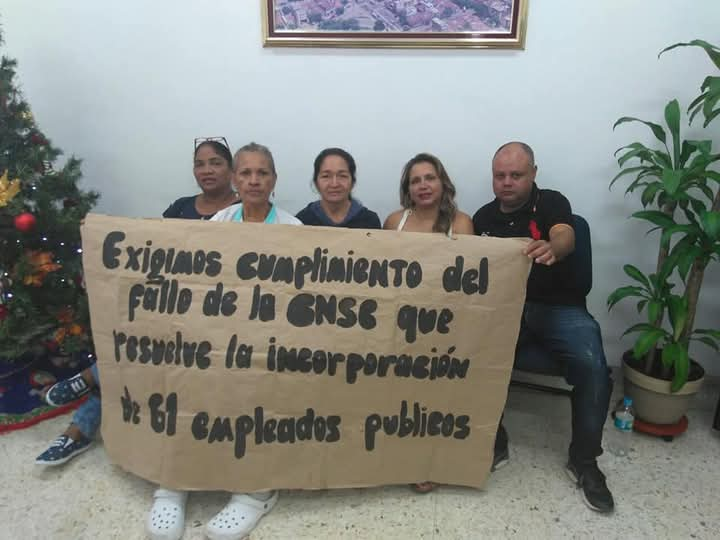 Exigimos cumplimiento del
fallo de la CNSC que
resuelve la incorporación
de 61 empleados publicos